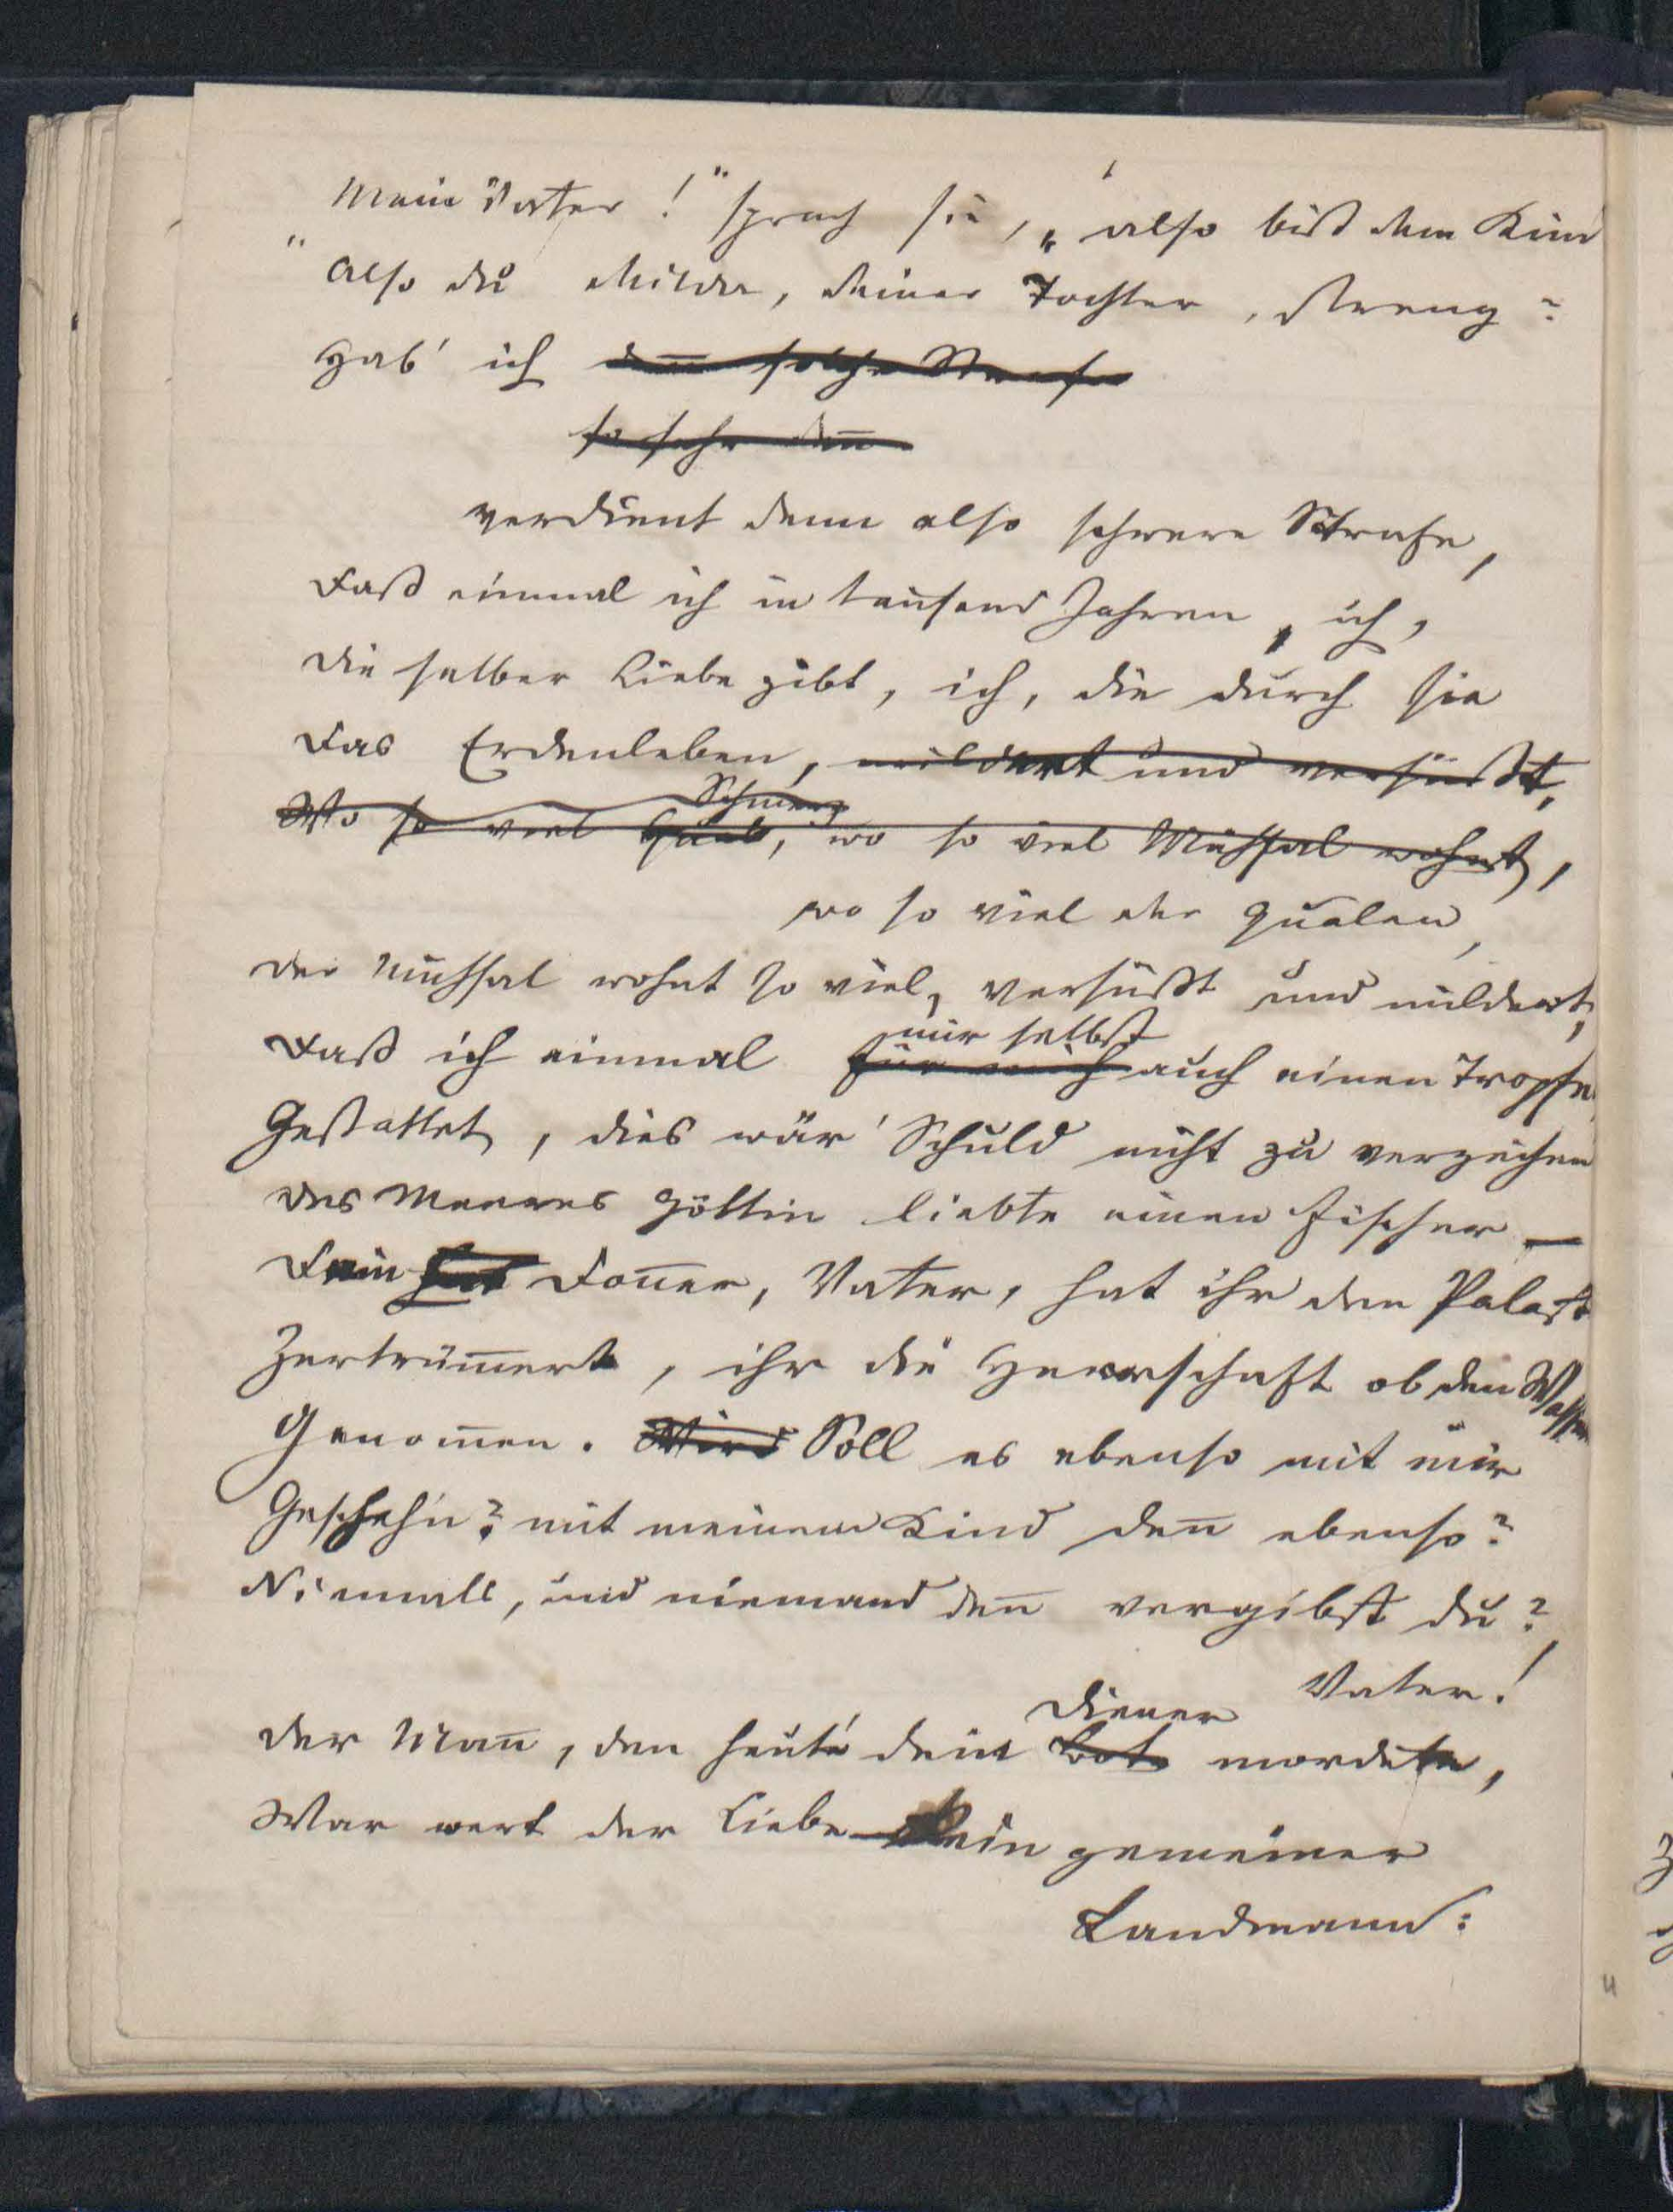 Mein Vater!" sprach sie, „also bist dem Kind
"Also du Milder, deiner Tochter, streng?
Hab' ich deñ solche Strafe
so sehr deñ
verdient denn also schwere Strafe,
Daß einmal ich in tausend Jahren, ich,
Die selber Liebe gibt, ich, die durch sie
Das Erdenleben, mildert und versüßt,
Schmerz
Wo so viel, wo so viel Mühsal wohnt,
wo so viel der Qualen,
Der Mühsal wohnt so viel, versüßt und mildert,
mir selbst
Daß ich einmal für mich auch einen Tropfen
Gestattet, dies wär' Schuld nicht zu verzeihen
Des Meeres Göttin liebte einen Fischer —
Dein hat Doñer, Vater, hat ihr den Palast
Zertrüm̄ert, ihr die Herrschaft ob den Wassern
Genom̄en. Wird Soll es ebenso mit mir
Gescheh'n? mit meinem Kind deñ ebenso?
Niemals, und niemand deñ vergibst du?
Vater!
Diener
Der Mañ, den heute dein Bote mordete,
War wert der Liebe kein gemeiner
Landmann: